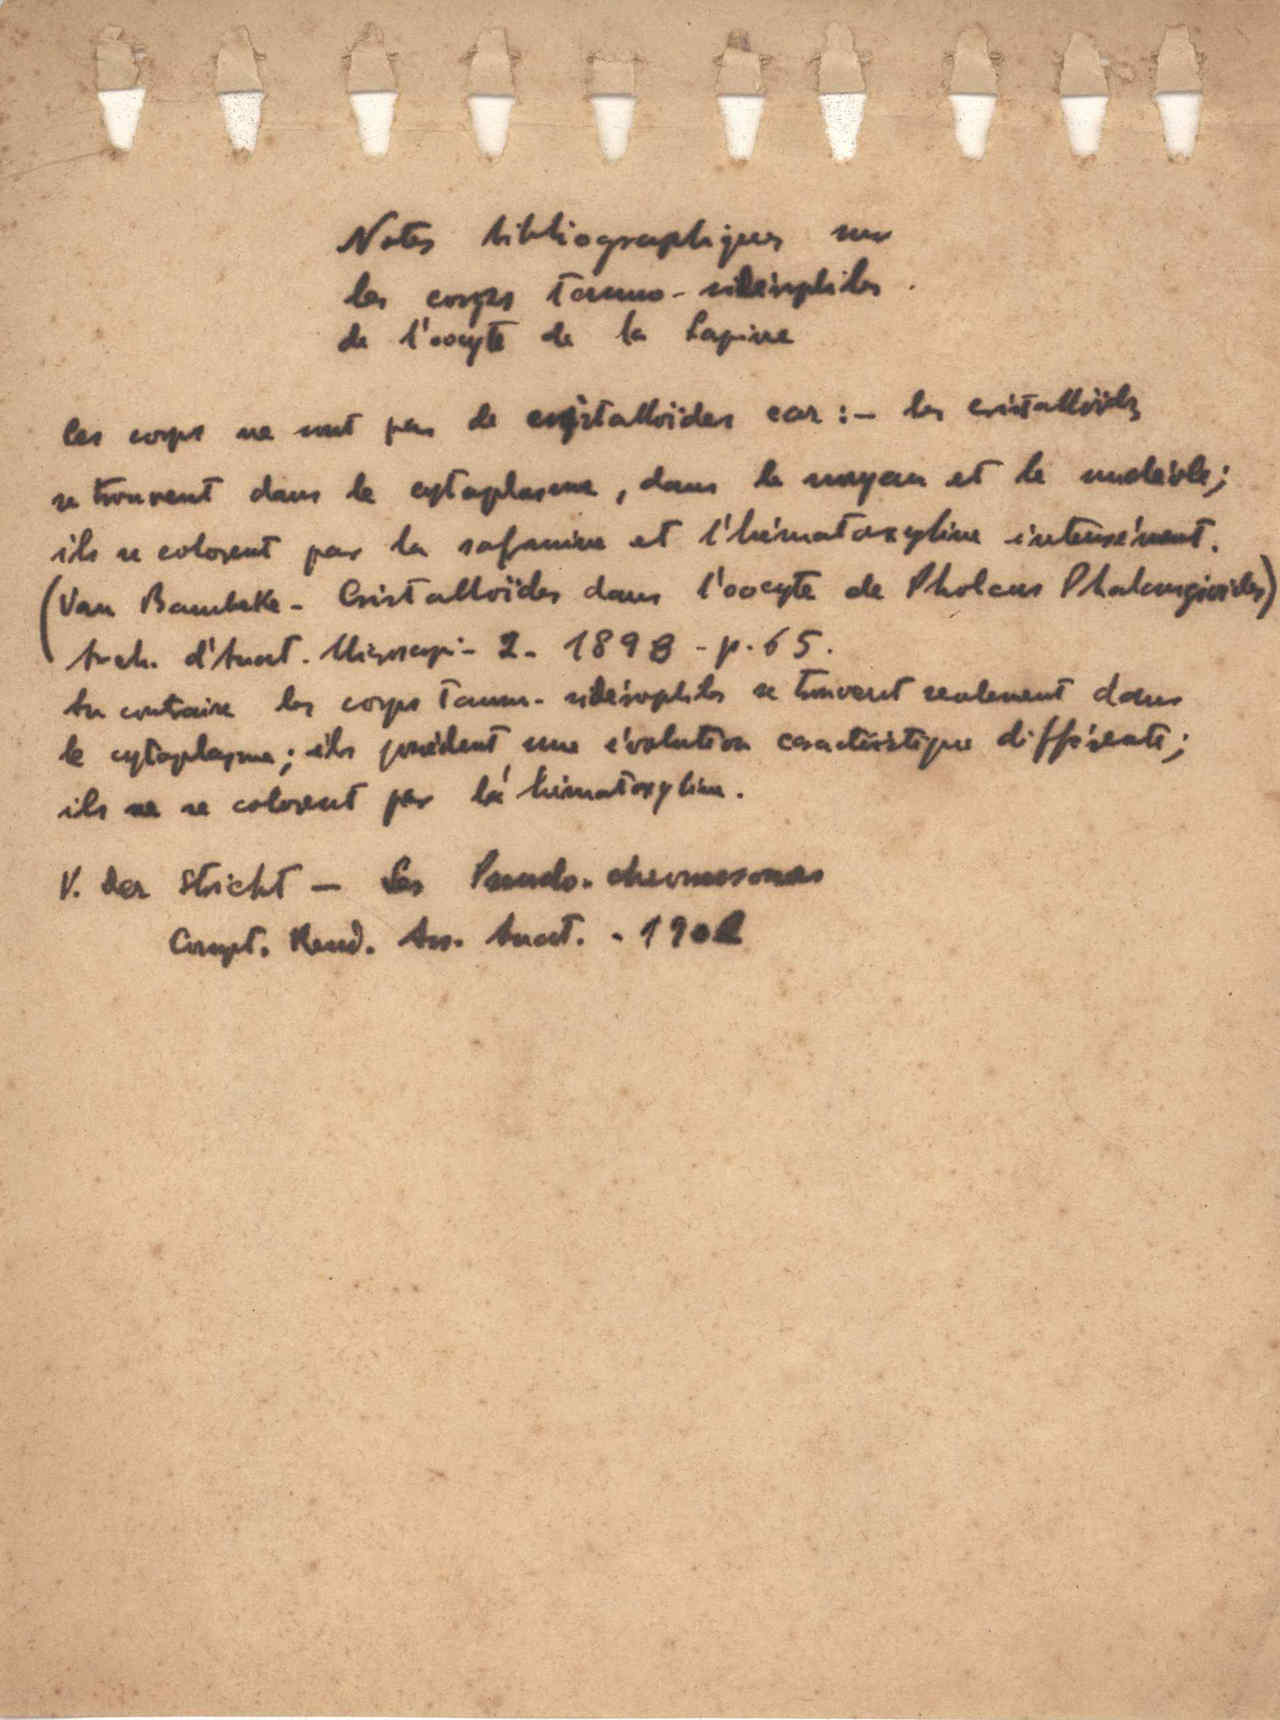 Notes bibliographiques sur
les corps tanno-sidérophiles.
de l'oocyte de la Lapine
Ces corps ne sont pas de cristalloïdes car :- les cristalloïdes
se trouvent dans le cytoplasme, dans le noyau et le nucléole;
ils se colorent par la safranine et l'hématoxyline intensément.
(Van Bambeke - Cristalloïdes dans l'oocyte de Pholcus Phalangioides)
Arch. d'Anat. Microscopi- 2- 1898 - p. 65.
Au contraire les corps tanno-sidérophiles se trouvent seulement dans
le cytoplasme; ils possèdent une évolution caractéristique différente;
ils ne se colorent par la hématoxyline.
V. der Stricht - Les Pseudo-chromosomes
Compt. Rend. Ass. Anat. - 1902